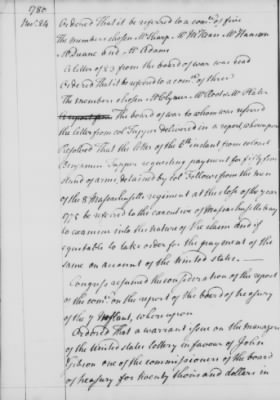 1780
Nov. 24
Ordered That it be referred to a comee. of five
The members chosen Mr Sharp Mr McKean Mr Hanson
Mr Duane and Mr Adams
A letter of 23 from the board of war was read
Ordered That it be referred to a comee. of three
The members chosen Mr Clymer Mr Root Mr
the board of war to whom was referred
the letter from col Tupper delivered in a report, whereupon
Resolved That the letter of the 8th instant from colonel
Benjamin Tupper requesting payment for fifty five
stand of arms, detained by col Fellows from the men
of the Massachusetts regiment at the close of the year
1775 be referred to the executive of Massachusetts bay
to examine into the nature of the claim and if
equitable to take order for the payment of the
same on account of the United States.
Congress resumed the consideration of the report
of the comee. on the report of the board of treasury
of the 7 instant, whereupon
Ordered That a warrant issue on the managers
of the United States lottery in favour of John
Gibson one of the commissioners of the board
of treasury for twenty thousand dollars in